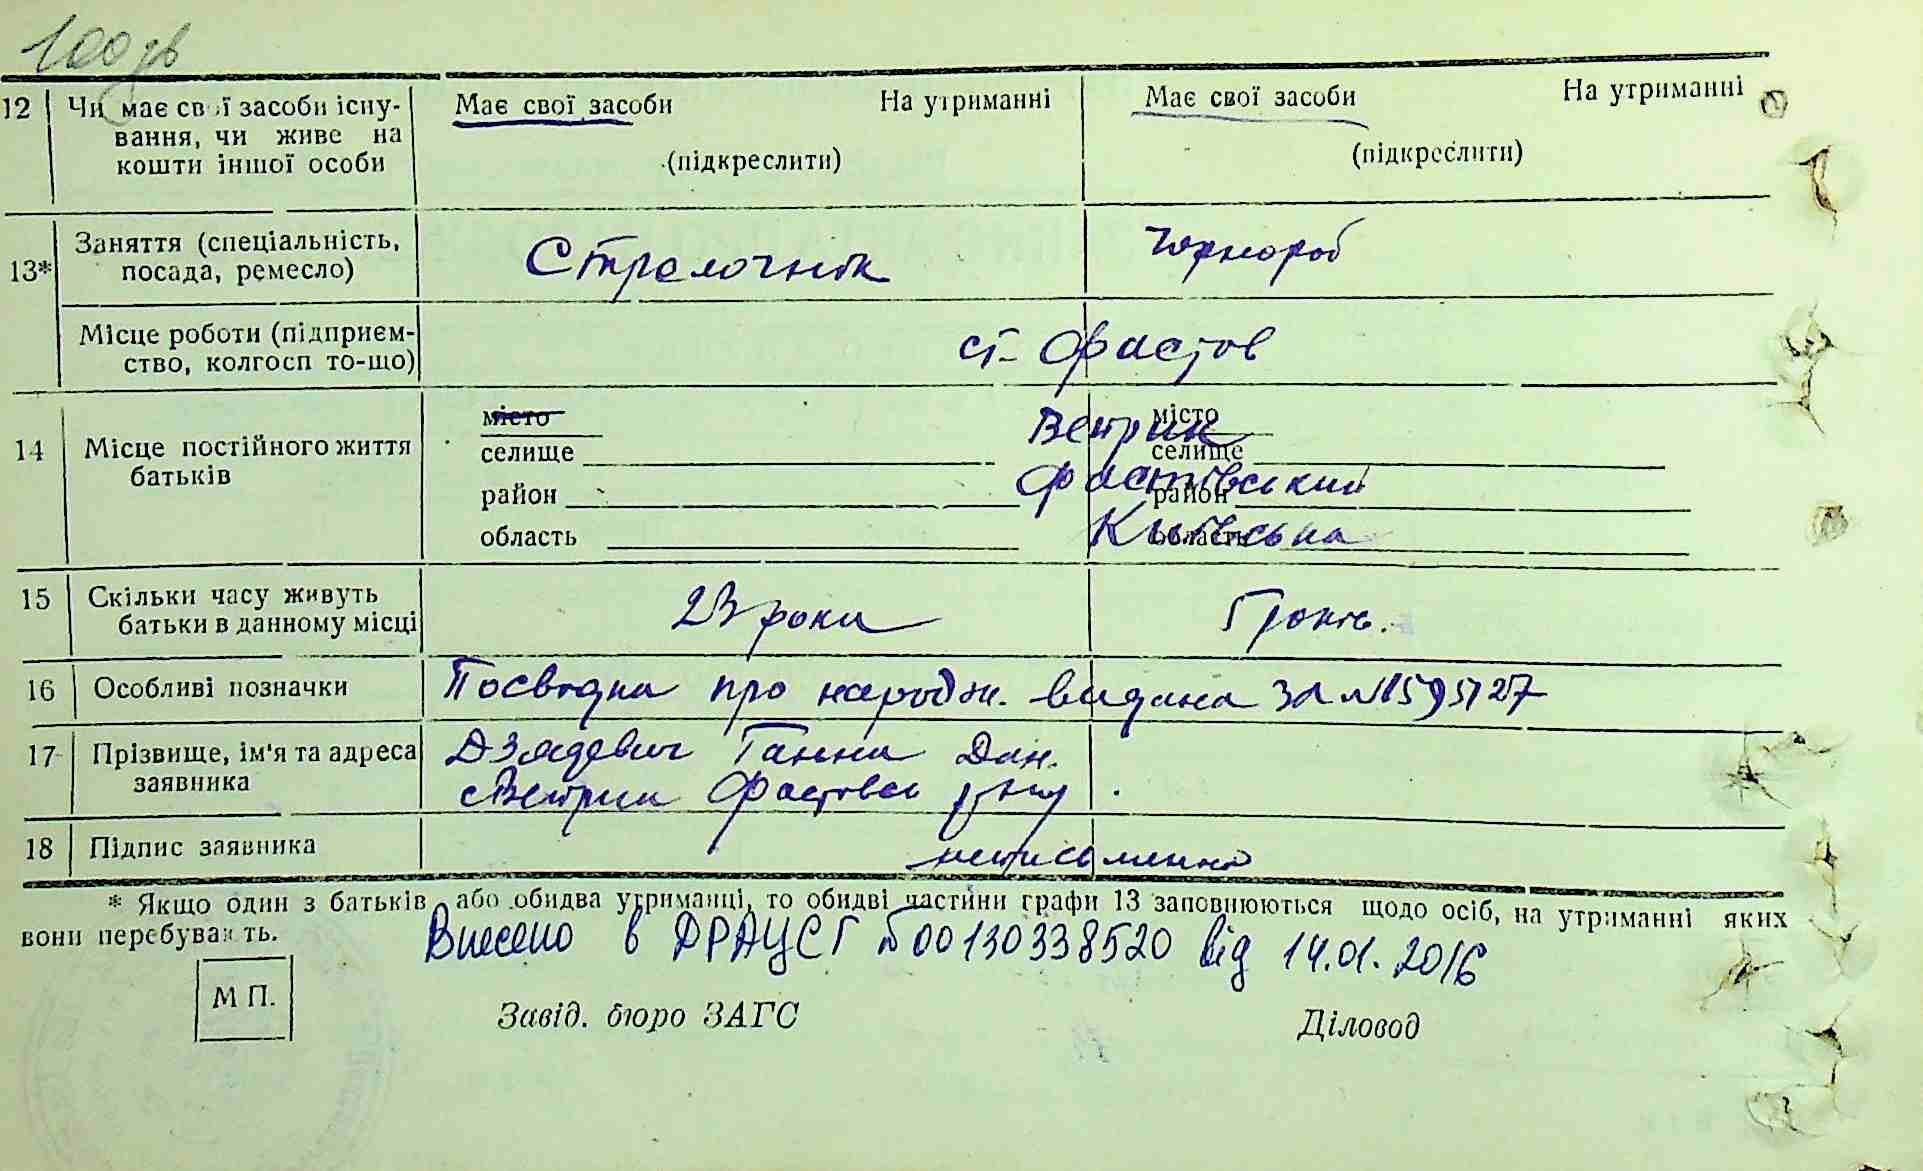 100 дв
12 Чи має свої засоби існу- Має свої засоби На утриманні Має свої засоби На утриманні
вання, чи живе на
кошти іншої особи (підкреслити) (підкреслити)
13* Заняття (спеціальність, Стрелочнік Чорнороб
посада, ремесло)
Місце роботи (підприєм- ст. Фастов
ство, колгосп то-що)
14 Місце постійного життя батьків
місто місто
селище Ветрик селище
район Фастівський район
область Київська область
15 Скільки часу живуть 23 роки 5 років.
батьки в данному місці
16 Особливі позначки Посвідка про народж. видана за №
17 Прізвище, ім'я та адреса Дзядевич Ганна Дан.
заявника Фастовськ
18 Підпис заявника неписьменна
* Якщо один з батьків або обидва утриманці, то обидві частини графи 13 заповнюються щодо осіб, на утриманні яких
вони перебувають.
Внесено в ДРАЦСГ №00130338520 від 14.01.2016
М П.
Завід. бюро ЗАГС Діловод